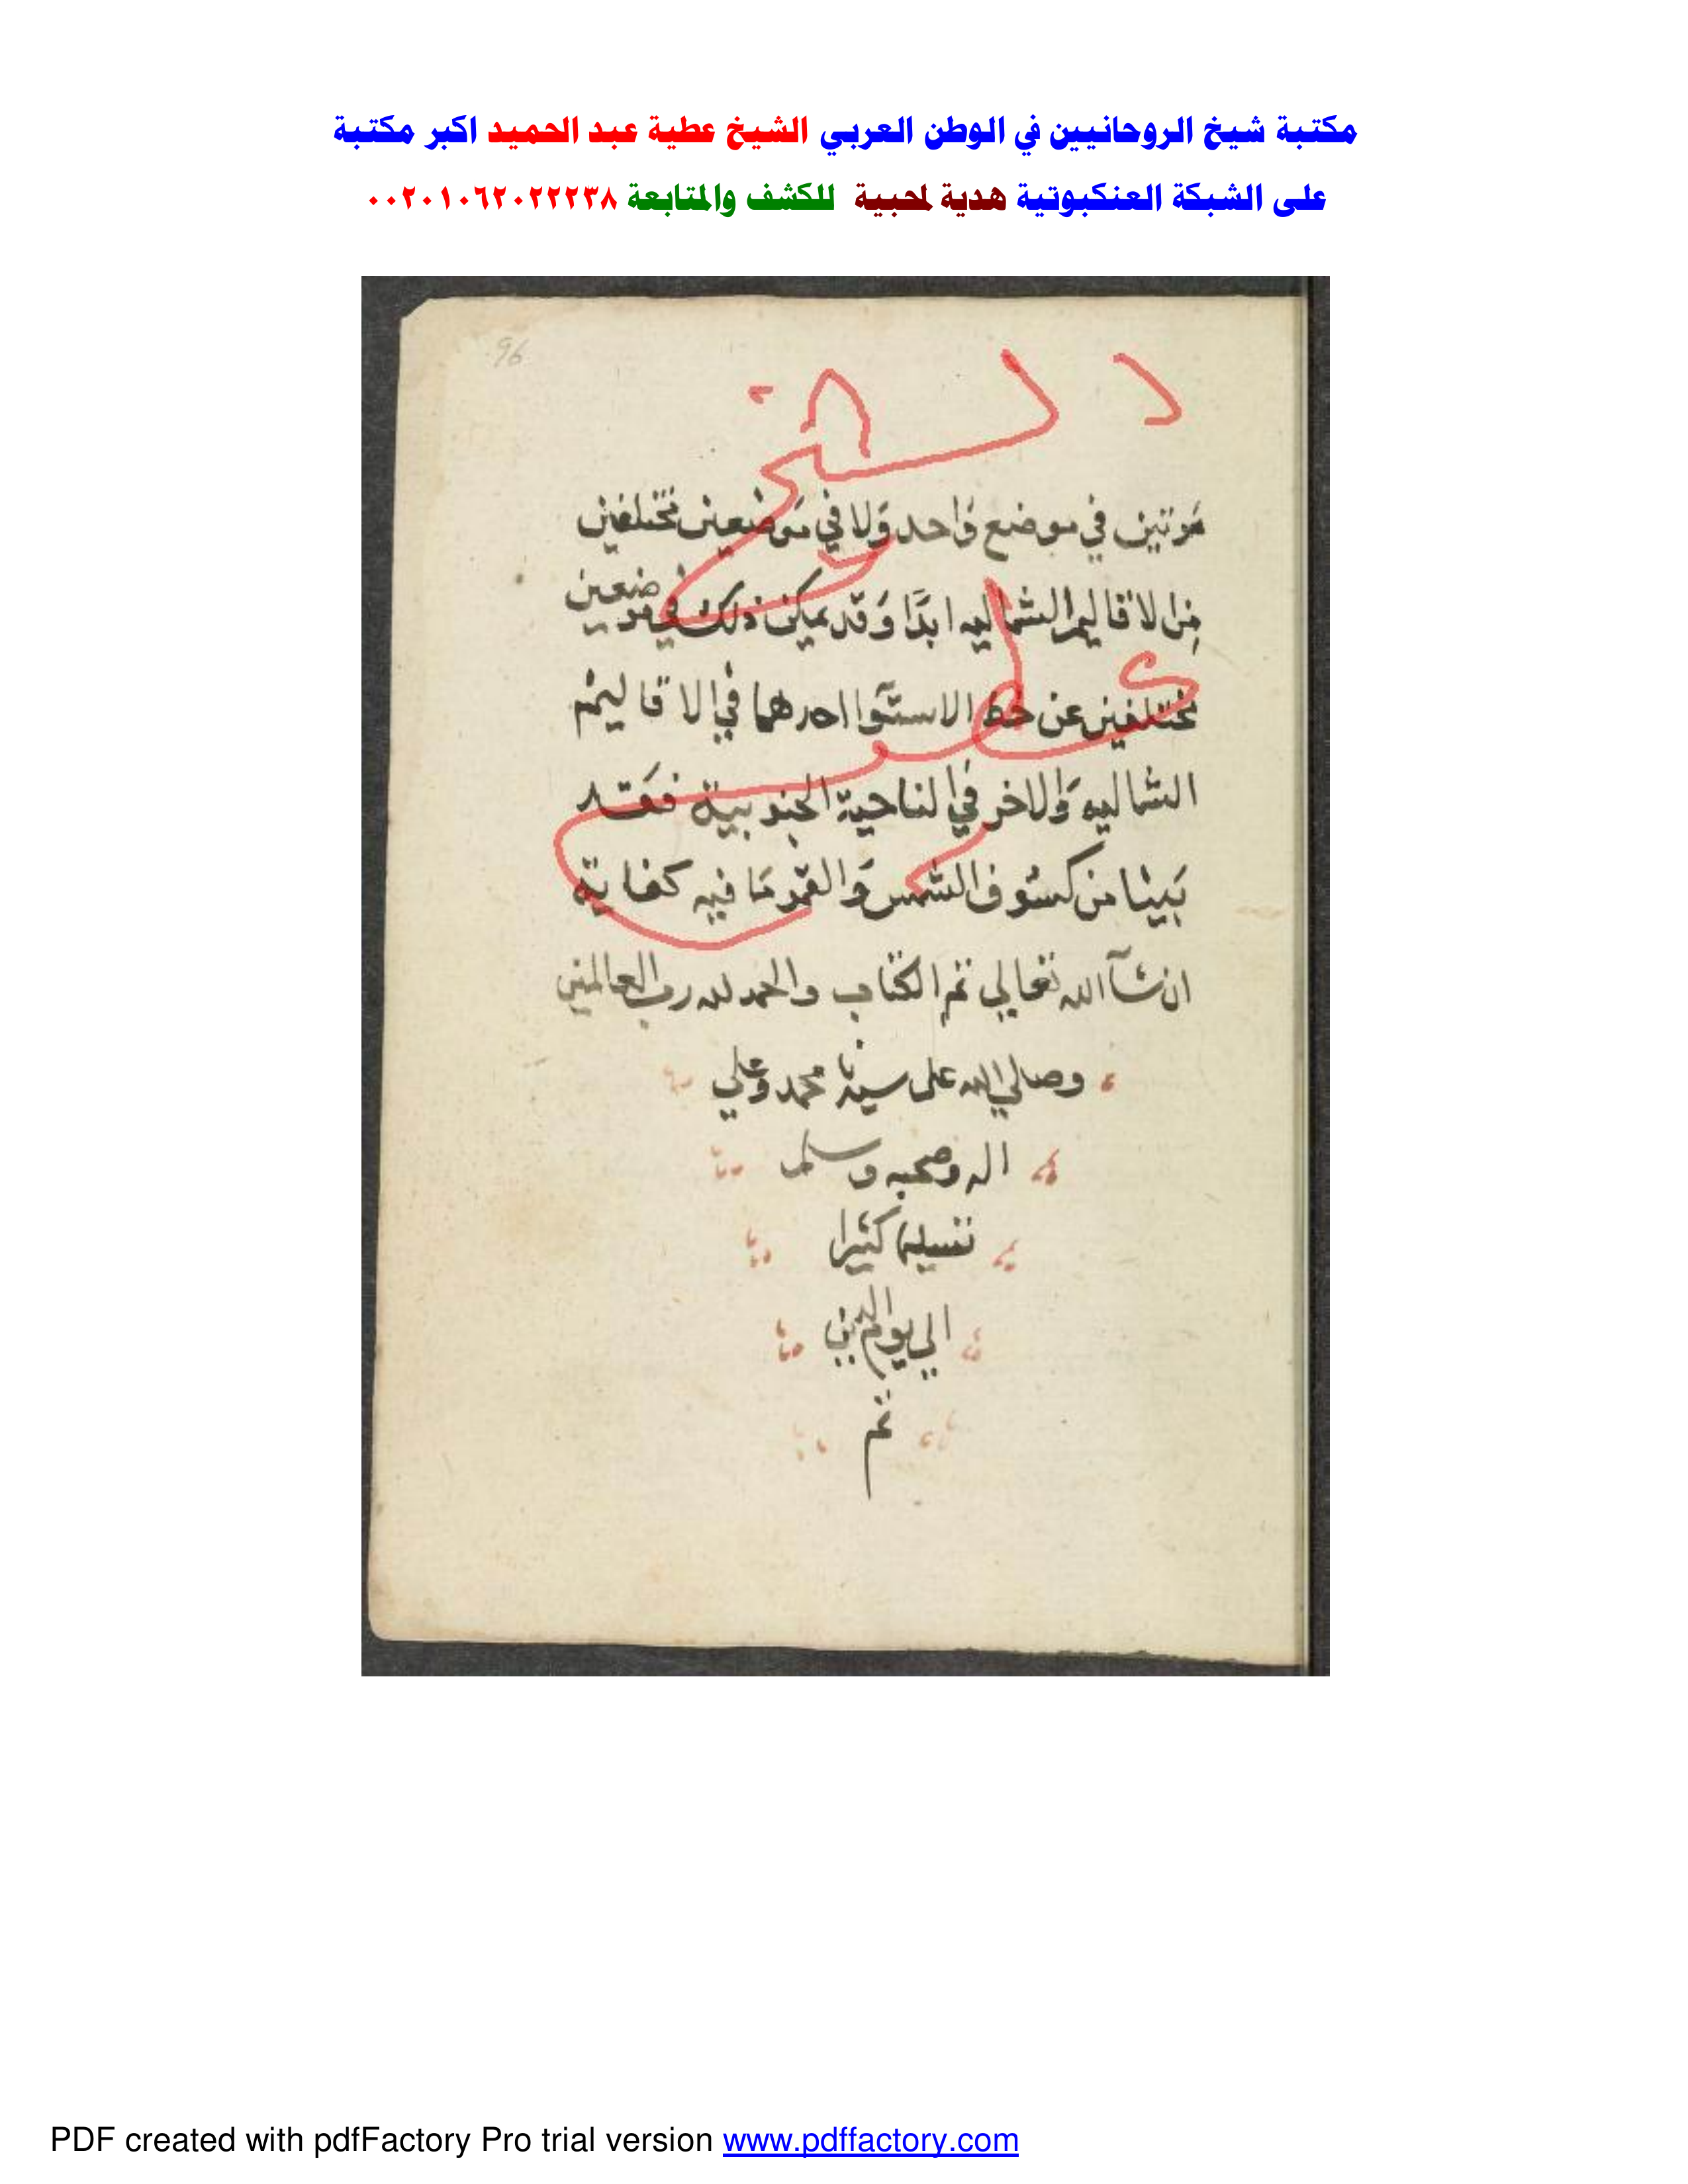 مكتبة شيخ الروحانيين في الوطن العربي الشيخ عطية عبد الحميد اكبر مكتبة
على الشبكة العنكبوتية هدية لمحبية للكشف والمتابعة ٠٠٢٠١٠٦٢٠٢٢٢٣٨
96
الشيخ
مرتين في موضع واحد ولا في موضعين مختلفين
من الاقاليم الشماليه ابدًا وقد يمكن ذلك في موضعين
مختلفين عن خط الاستوا احدهما في الاقاليم
الشماليه والاخر في الناحية الجنوبية فقد
بينا من كسوف الشمس والقمر ما فيه كفاية
ان شآ الله تعالي تم الكتاب والحمد لله رب العالمين
وصلي الله على سيدنا محمد وعلي
اله وصحبه وسلم
تسليما كثيرا
الي يوم الدين
تم
PDF created with pdfFactory Pro trial version www.pdffactory.com